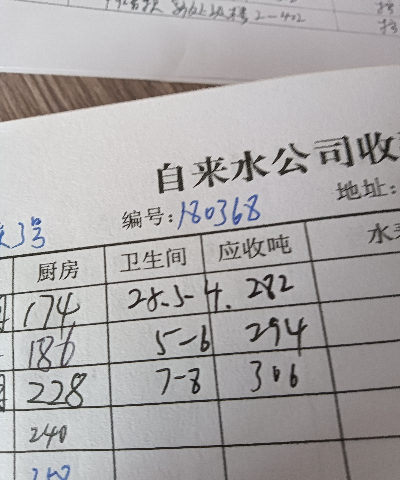 2-402
自来水公司收
编号:180368 地址:
3号
厨房 卫生间 应收吨 水
174 28.5-4. 282
186 5-6 294
228 7-8 306
240